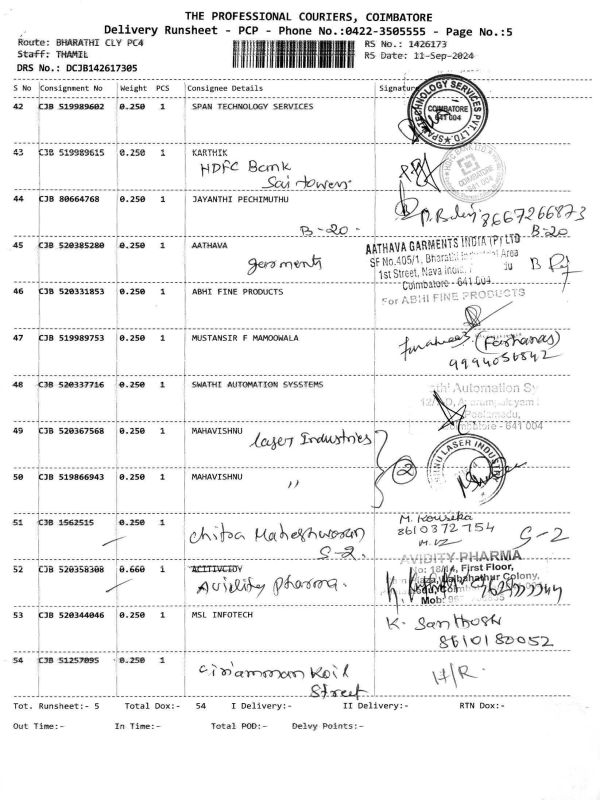 THE PROFESSIONAL COURIERS, COIMBATORE
Delivery Runsheet - PCP - Phone No.:0422-3505555 - Page No.:5
Route: BHARATHI CLY PC4
RS No.: 1426173
Staff: THAMIL
RS Date: 11-Sep-2024
DRS No.: DCJB142617305
S No Consignment No Weight PCS Consignee Details Signature
42 CJB 519989602 0.250 1 SPAN TECHNOLOGY SERVICES
SPAN TECHNOLOGY SERVICES PVT. LTD.
COIMBATORE
641 004
43 CJB 519989615 0.250 1 KARTHIK
HDFC Bank
Sai towers
COIMBATORE
44 CJB 80664768 0.250 1 JAYANTHI PECHIMUTHU
8667266873
B-20. B-20
45 CJB 520385280 0.250 1 AATHAVA
garments
AATHAVA GARMENTS INDIA (P) LTD
SF No.405/1, Bharathi Industrial Area
1st Street, Nava India
Coimbatore - 641 004
46 CJB 520331853 0.250 1 ABHI FINE PRODUCTS
For ABHI FINE PRODUCTS
47 CJB 519989753 0.250 1 MUSTANSIR F MAMOOWALA
(Farhanas)
9994056842
48 CJB 520337716 0.250 1 SWATHI AUTOMATION SYSSTEMS
thi Automation Sy
Peelamedu,
Coimbatore - 641 004
49 CJB 520367568 0.250 1 MAHAVISHNU
Laser Industries
2
50 CJB 519866943 0.250 1 MAHAVISHNU
"
HNU LASER INDUSTRY
51 CJB 1562515 0.250 1
Chitra Maheshwaran
S-2.
M. Kousika
8610372754
S-2
52 CJB 520358308 0.660 1 ACITIVCIDY
Avidity pharma.
AVIDITY PHARMA
No: 18/14, First Floor,
Lalbahathur Colony,
Mob:
53 CJB 520344046 0.250 1 MSL INFOTECH
K. Santhosh
8610180052
54 CJB 51257095 0.250 1
Koil
Street
H/R.
Tot. Runsheet:- 5 Total Dox:- 54 I Delivery:- II Delivery:- RTN Dox:-
Out Time:- In Time:- Total POD:- Delvy Points:-